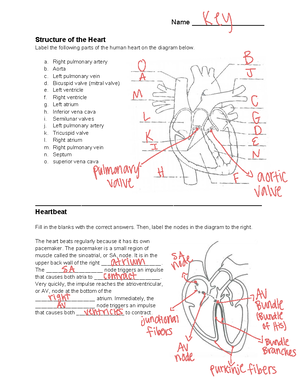 Name Key
Structure of the Heart
Label the following parts of the human heart on the diagram below.
a. Right pulmonary artery
b. Aorta
c. Left pulmonary vein
d. Bicuspid valve (mitral valve)
e. Left ventricle
f. Right ventricle
g. Left atrium
h. Inferior vena cava
i. Semilunar valves
j. Left pulmonary artery
k. Tricuspid valve
l. Right atrium
m. Right pulmonary vein
n. Septum
o. superior vena cava
O
A
M
L
K
I
H
B
J
C
G
D
E
N
F
pulmonary
valve
aortic
valve
Heartbeat
Fill in the blanks with the correct answers. Then, label the nodes in the diagram to the right.
The heart beats regularly because it has its own
pacemaker. The pacemaker is a small region of
muscle called the sinoatrial, or SA, node. It is in the
upper back wall of the right atrium
The SA node triggers an impulse
that causes both atria to contract
Very quickly, the impulse reaches the atrioventricular,
or AV, node at the bottom of the
right atrium. Immediately, the
AV node triggers an impulse
that causes both ventricles to contract
SA
node
junctional
fibers
AV
node
AV
Bundle
(Bundle
of His)
Bundle
Branches
purkinje fibers